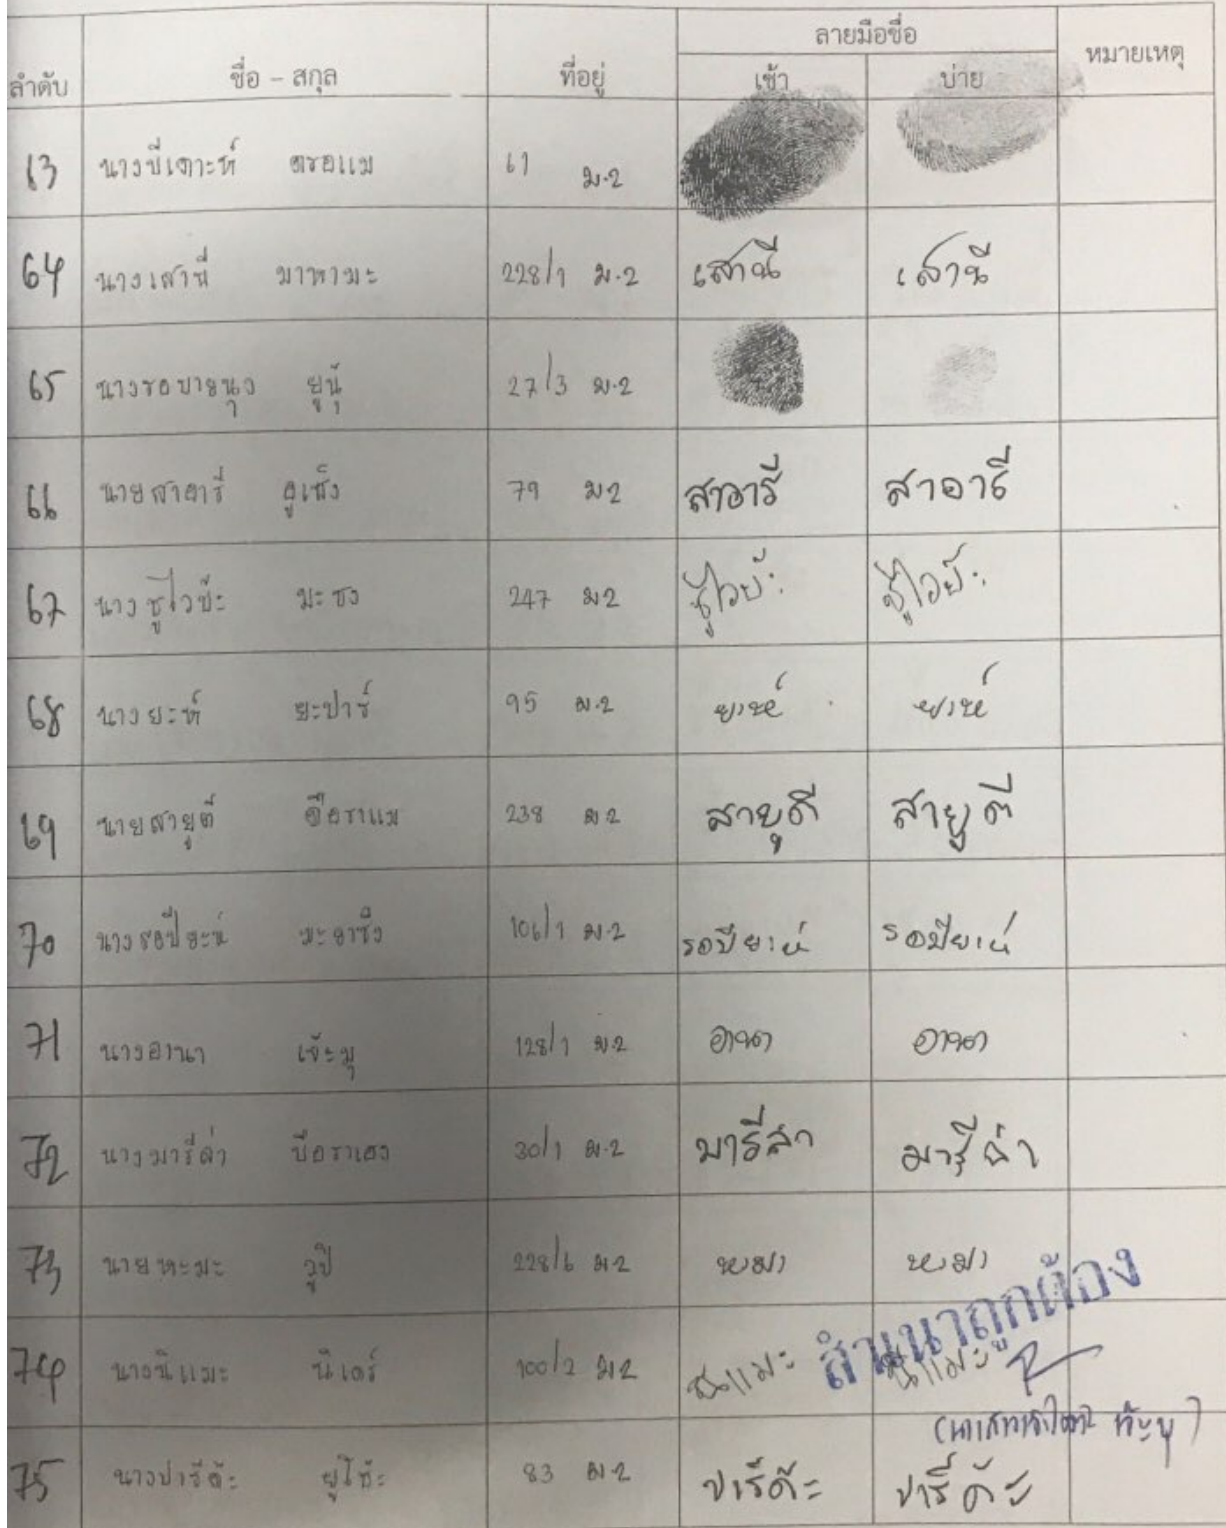 ลายมือชื่อ
ลำดับ ชื่อ - สกุล ที่อยู่ เช้า บ่าย หมายเหตุ
63 นางบีเดาะห์ ดรอแม 61 ม.2
64 นางเสานี มาหามะ 228/1 ม.2 เสานี เสานี
65 ยูนุ๊ 27/3 ม.2
66 นายสาอารี อูเซ็ง 79 ม2 สาอารี สาอารี
67 นางซูไวบ๊ะ 247 ม2 ซูไวบ๊ะ
68 นางยะห์ ยะปาร์ 95 ม.2
69 นายสายูตี อีอราแม 238 ม2 สายูดี สายูตี
70 นางรอปียะห์ มะอาซิง 106/1 ม.2 รอปียะห์ รอปียะห์
71 นางอานา เจ๊ะมุ 128/1 ม.2 อานา อานา
72 นางมารีล่า บือราเฮง 30/1 ม.2 มารีล่า มารีล่า
73 นายหะมะ วูปี 228/6 ม.2 หะมะ หะมะ
สำเนาถูกต้อง
74 นางนิแมะ นิเดร์ 100/2 ม2 นิแมะ นิแมะ
75 นางปารีด๊ะ ยูโซ๊ะ 83 ม.2 ปารีด๊ะ ปารีด๊ะ